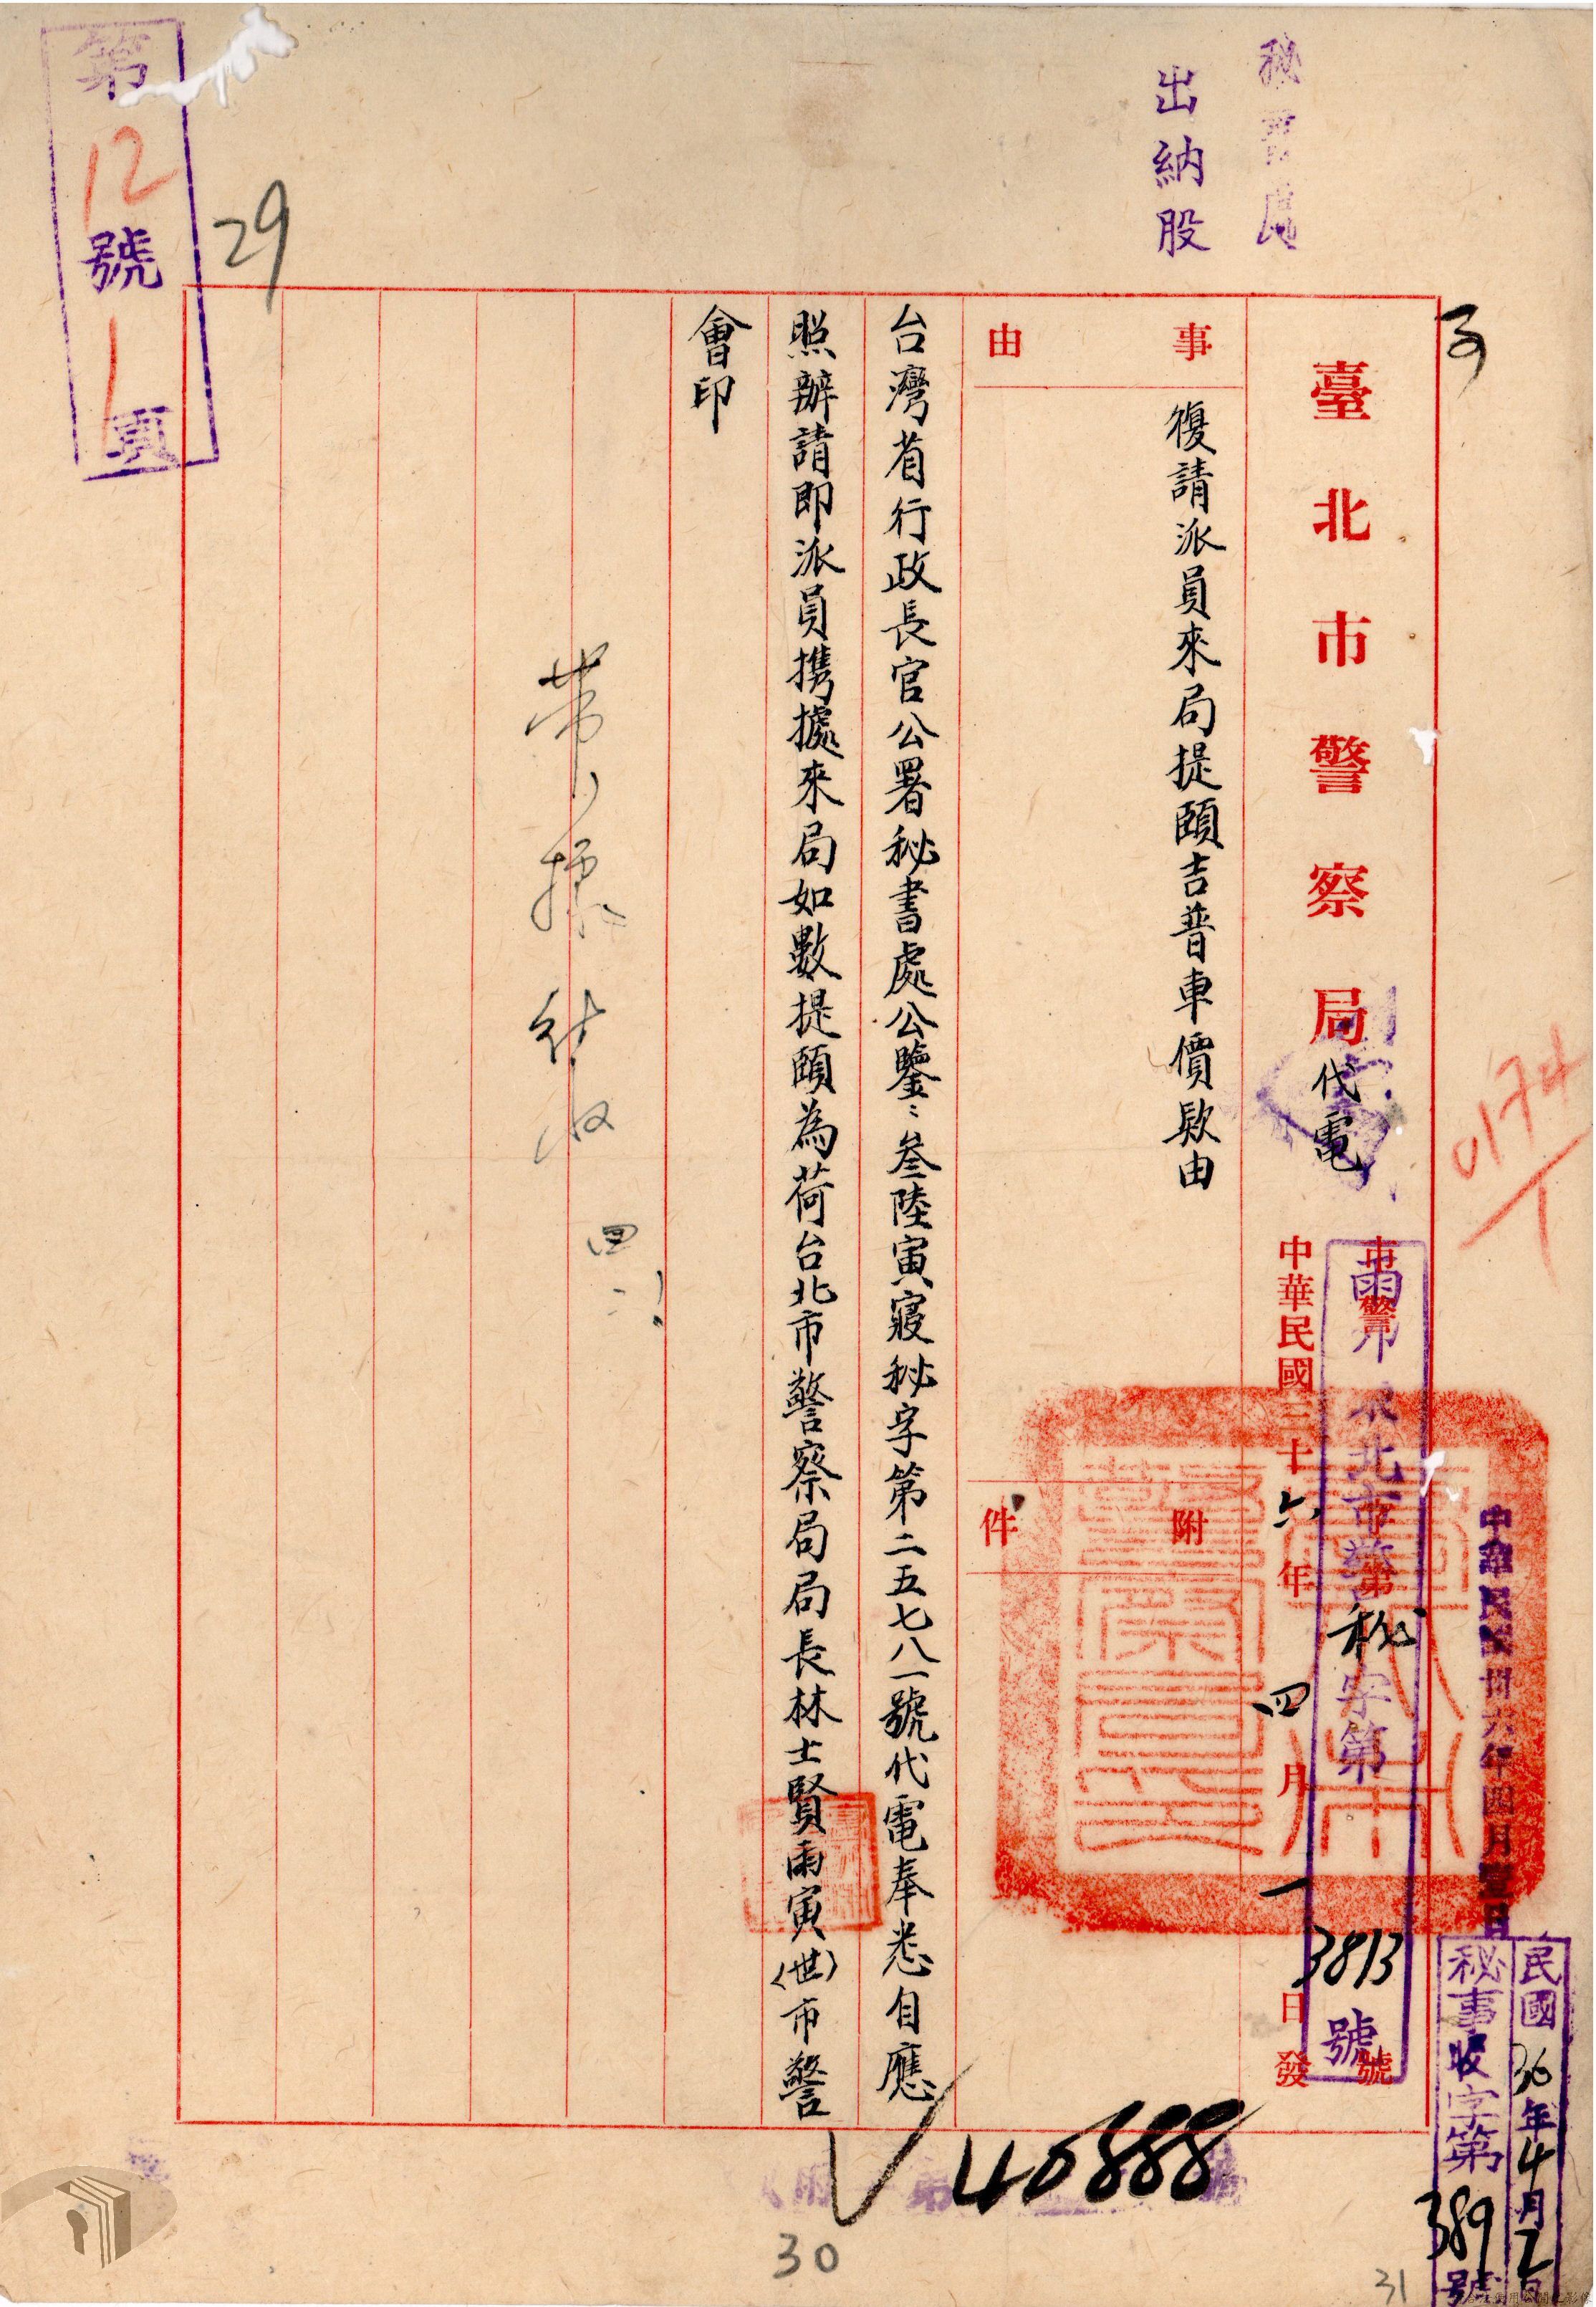 秘書處
出納股
臺北市警察局代電
市警第 號
中華民國三十六年四月一日發
北市警秘字第3813號
中華民國卅六年四月壹日
民國36年4月2日
秘事收字第389號
0174
1
事由
復請派員來局提領吉普車價款由
附件
台灣省行政長官公署秘書處公鑒:叁陸寅寢秘字第二五七八一號代電奉悉自應
照辦請即派員携據來局如數提領為荷台北市警察局局長林士賢雨寅(世)市警
會印
四
40888
第12號1頁
29
30
31